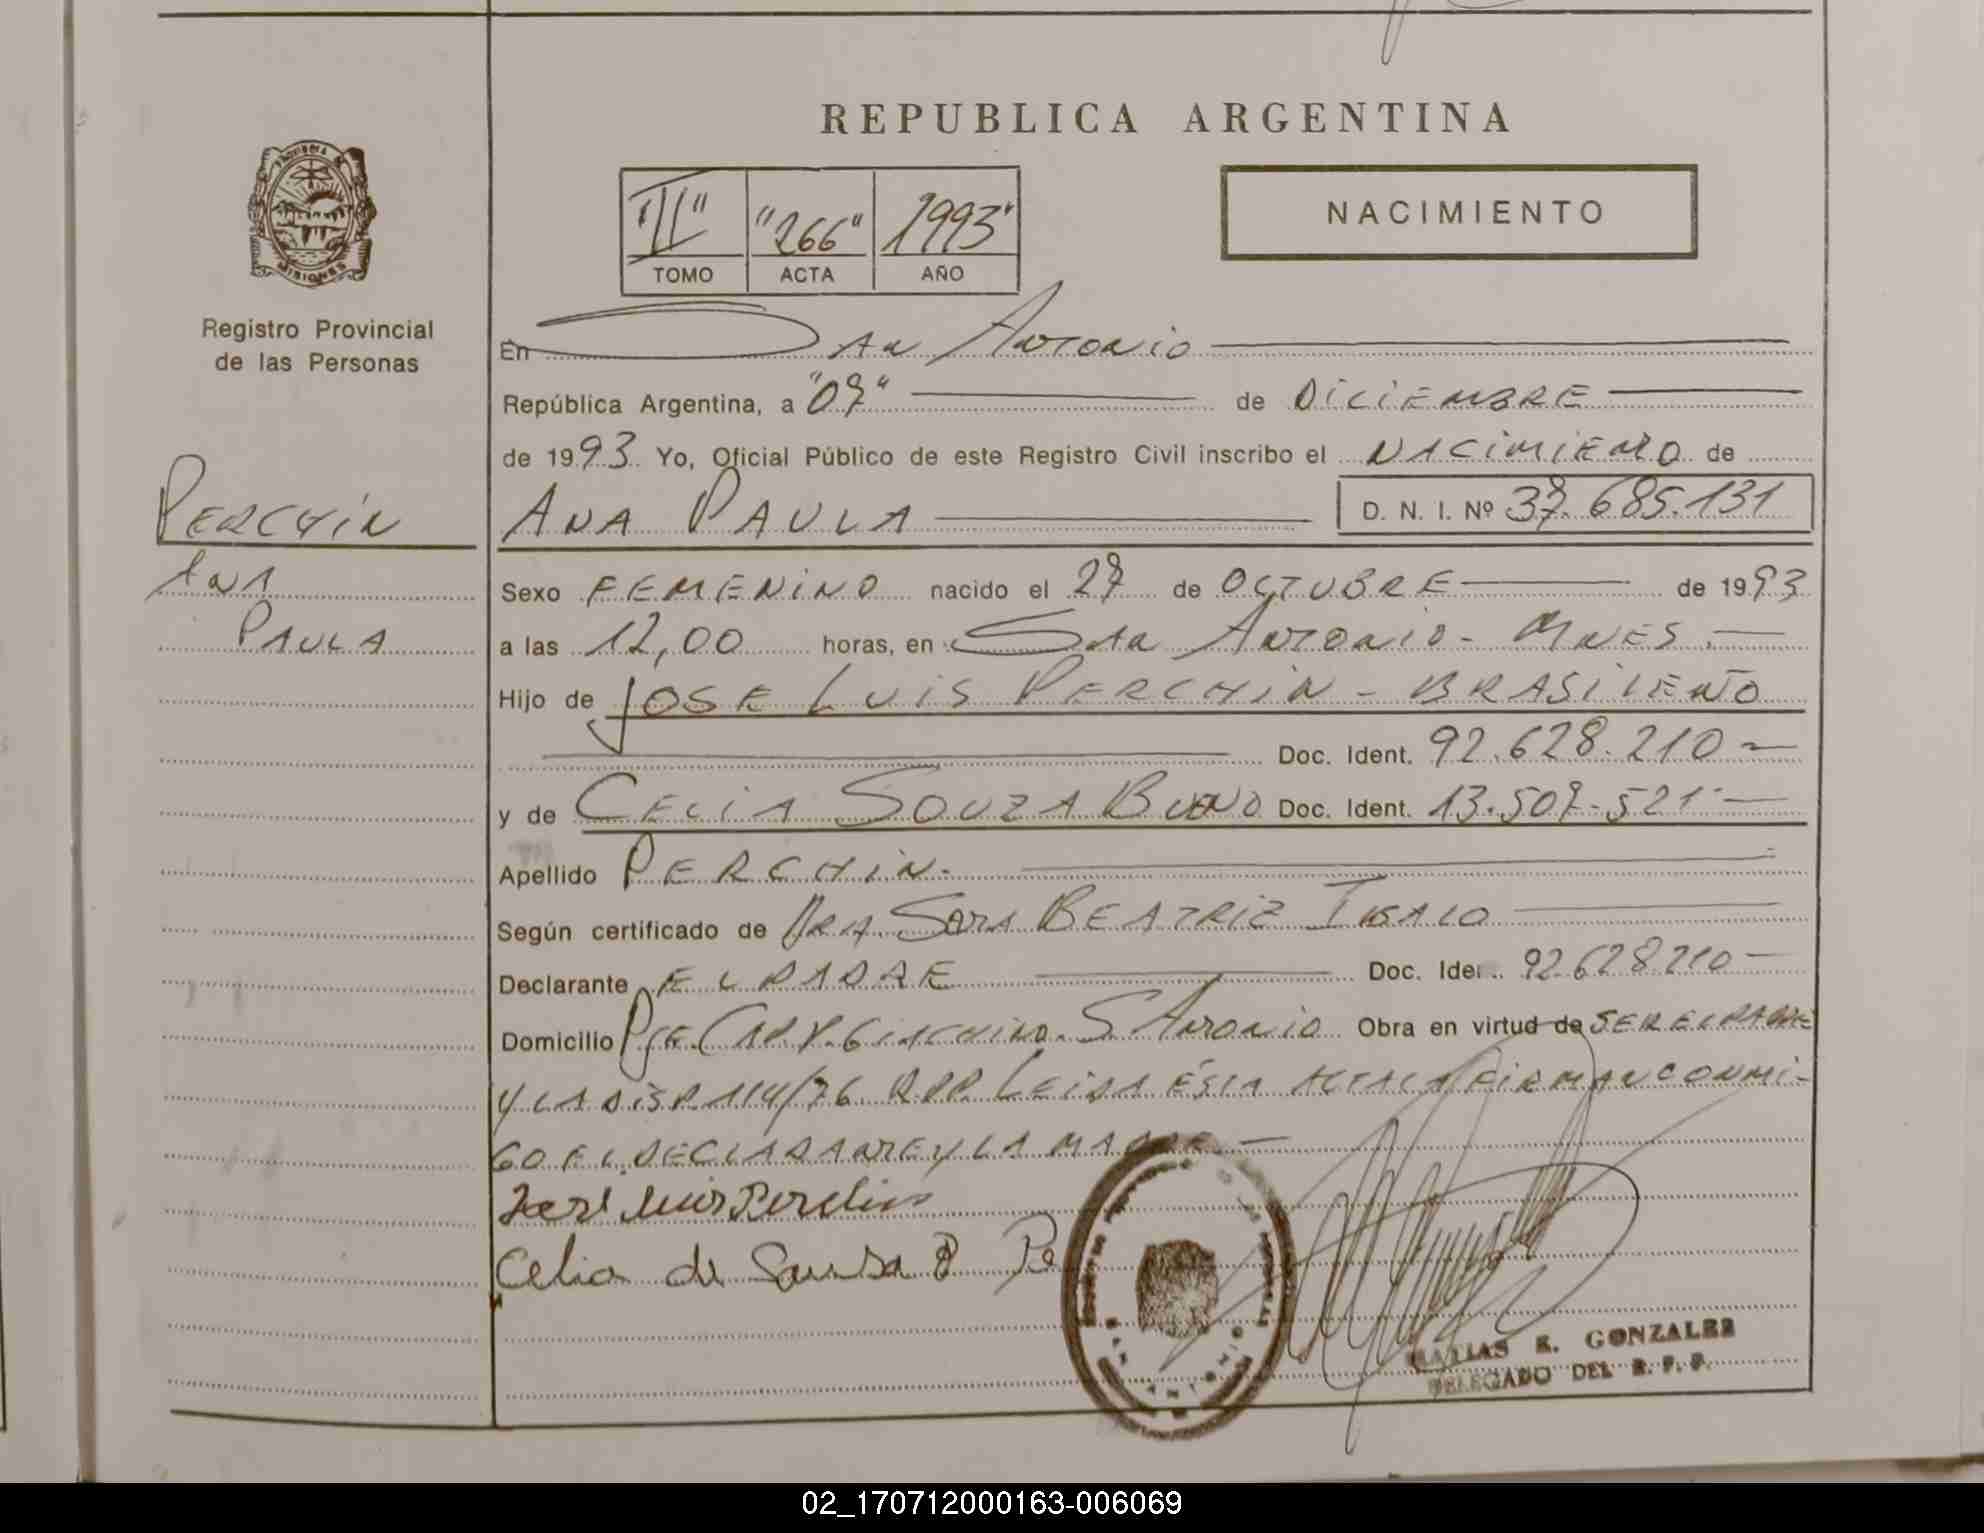 REPUBLICA ARGENTINA
PROVINCIA DE
MISIONES
Registro Provincial
de las Personas
NACIMIENTO
"III" "266" 1993"
TOMO ACTA AÑO
En San Antonio
República Argentina, a "07" de DICIEMBRE
de 1993 Yo, Oficial Público de este Registro Civil inscribo el NACIMIENTO de
PERCHIN
ANA PAULA D. N. I. Nº 37.685.131
ANA
PAULA
Sexo FEMENINO nacido el 27 de OCTUBRE de 1993
a las 12,00 horas, en San Antonio - MNES.
Hijo de JOSE LUIS PERCHIN - BRASILEÑO
Doc. Ident. 92.628.210
y de CELIA SOUZA BUENO Doc. Ident. 13.507.521
Apellido PERCHIN.
Según certificado de DRA. SARA BEATRIZ
Declarante EL PADRE Doc. Ident. 92.628.210
Domicilio PJE. S. ANTONIO Obra en virtud de SER EL PADRE
Y LA DISP. 114/76 RPP. LEIDA ESTA ACTA LA FIRMAN CONMI-
GO EL DECLARANTE Y LA MADRE
José Luis Perchin
Celia de Sousa B Pe
SAN ANTONIO
MATIAS E. GONZALEZ
DELEGADO DEL R. P. P.
02_170712000163-006069